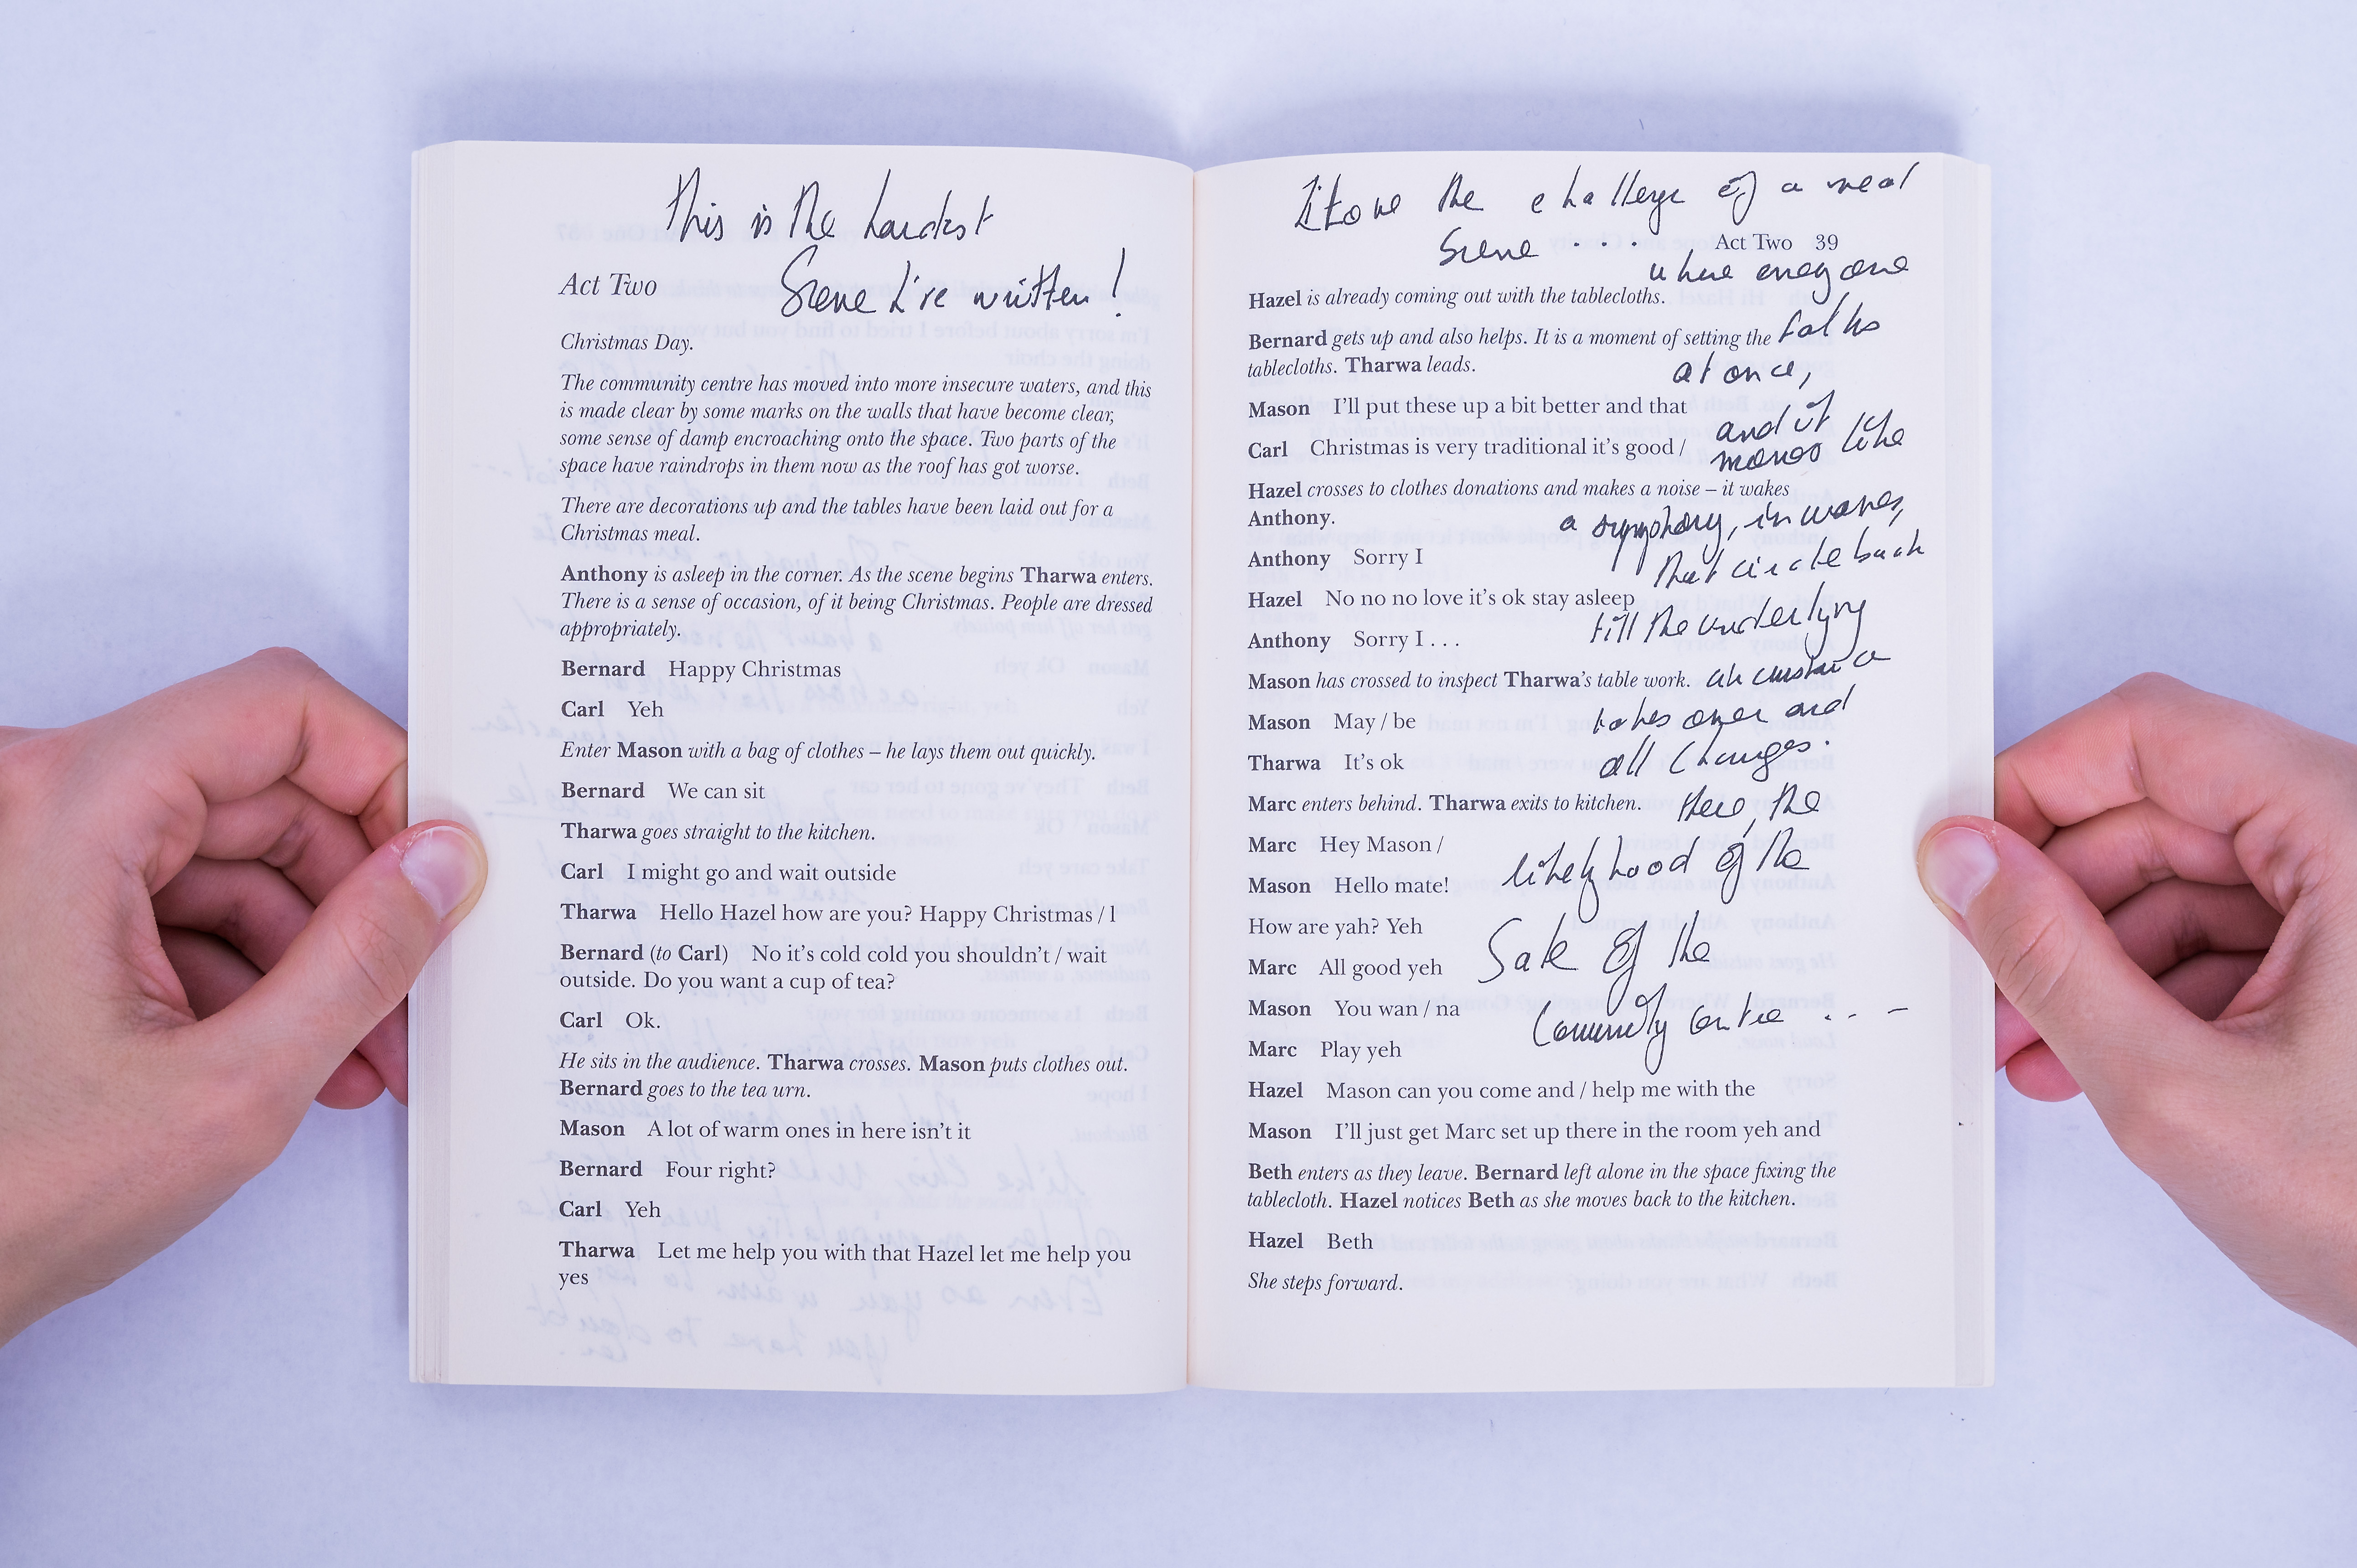 This is the hardest
Scene I've written!
Act Two
Christmas Day.
The community centre has moved into more insecure waters, and this
is made clear by some marks on the walls that have become clear,
some sense of damp encroaching onto the space. Two parts of the
space have raindrops in them now as the roof has got worse.
There are decorations up and the tables have been laid out for a
Christmas meal.
Anthony is asleep in the corner. As the scene begins Tharwa enters.
There is a sense of occasion, of it being Christmas. People are dressed
appropriately.
Bernard Happy Christmas
Carl Yeh
Enter Mason with a bag of clothes – he lays them out quickly.
Bernard We can sit
Tharwa goes straight to the kitchen.
Carl I might go and wait outside
Tharwa Hello Hazel how are you? Happy Christmas / I
Bernard (to Carl) No it's cold cold you shouldn't / wait
outside. Do you want a cup of tea?
Carl Ok.
He sits in the audience. Tharwa crosses. Mason puts clothes out.
Bernard goes to the tea urn.
Mason A lot of warm ones in here isn't it
Bernard Four right?
Carl Yeh
Tharwa Let me help you with that Hazel let me help you
yes
the challenge of a meal
Scene . . .
Act Two 39
where everyone
talks
at once,
and it
moves like
a symphony, in waves,
that circle back
till the underlying
circumstance
takes over and
all changes.
Here, the
likelyhood of the
Sale of the
Community Centre . . –
Hazel is already coming out with the tablecloths.
Bernard gets up and also helps. It is a moment of setting the
tablecloths. Tharwa leads.
Mason I'll put these up a bit better and that
Carl Christmas is very traditional it's good /
Hazel crosses to clothes donations and makes a noise – it wakes
Anthony.
Anthony Sorry I
Hazel No no no love it's ok stay asleep
Anthony Sorry I . . .
Mason has crossed to inspect Tharwa's table work.
Mason May / be
Tharwa It's ok
Marc enters behind. Tharwa exits to kitchen.
Marc Hey Mason /
Mason Hello mate!
How are yah? Yeh
Marc All good yeh
Mason You wan / na
Marc Play yeh
Hazel Mason can you come and / help me with the
Mason I'll just get Marc set up there in the room yeh and
Beth enters as they leave. Bernard left alone in the space fixing the
tablecloth. Hazel notices Beth as she moves back to the kitchen.
Hazel Beth
She steps forward.